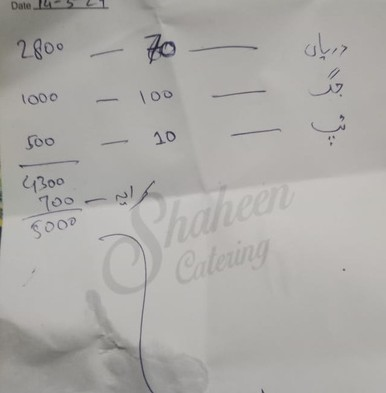 Date 14-5-24
2800 — 70 — دریاں
1000 — 100 — جگ
500 — 10 — ٹپ
4300
700 — کرایہ
5000
Shaheen
Catering